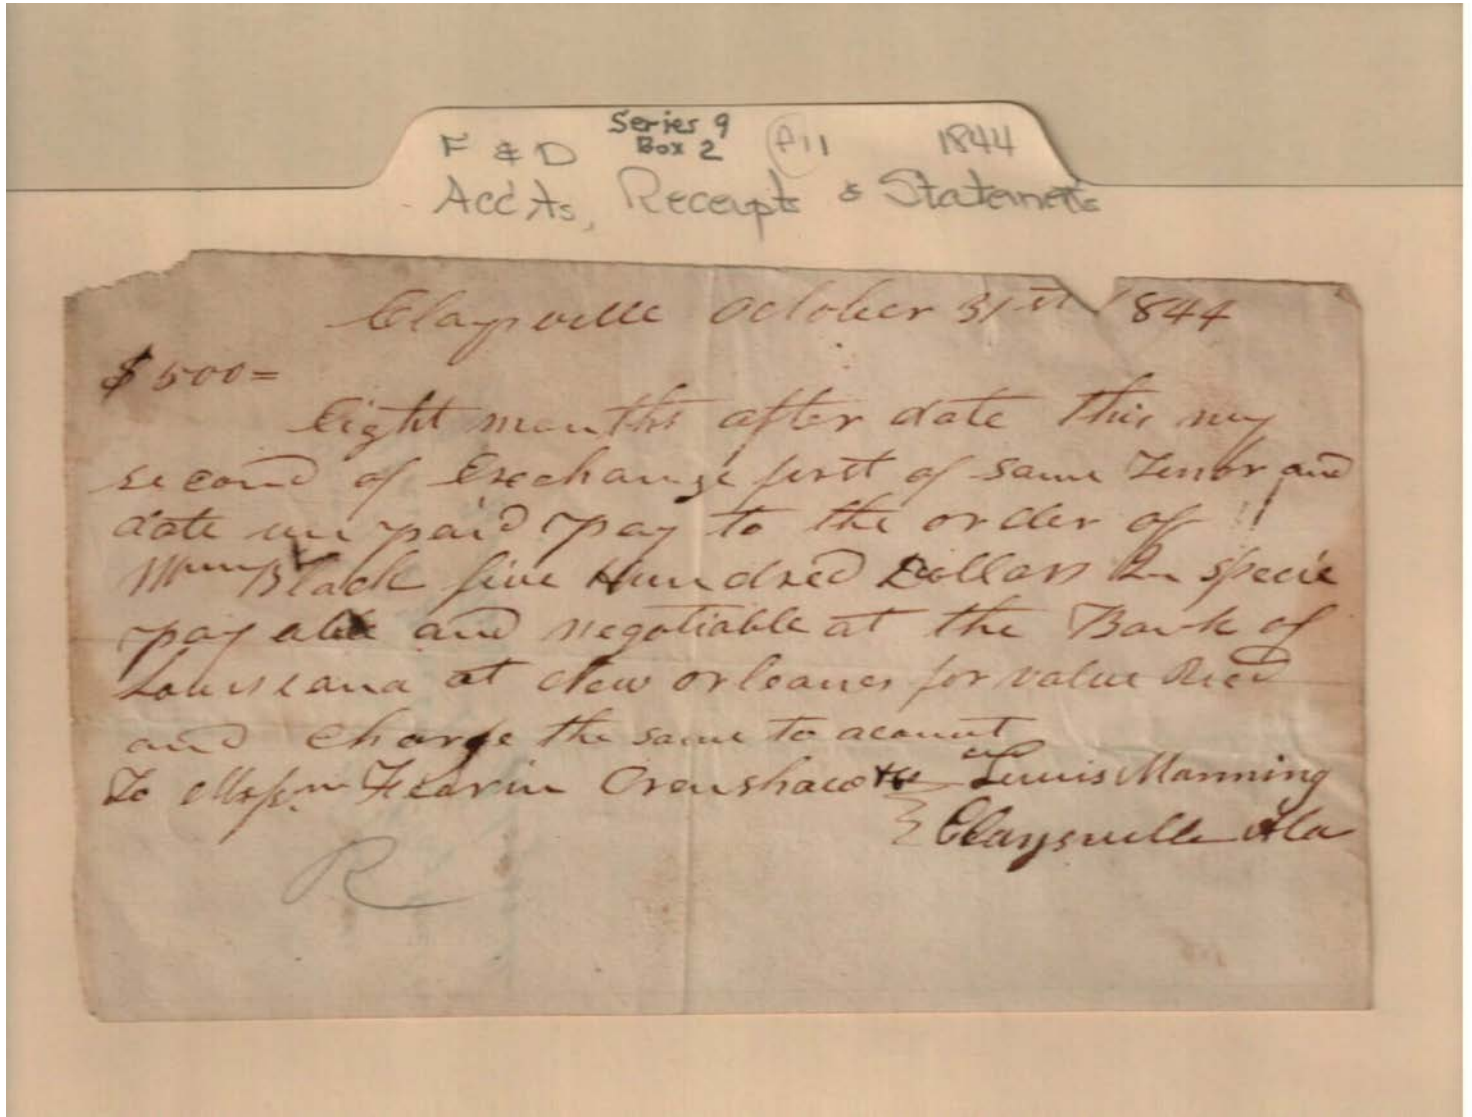 Series 9
F & D Box 2 F11 1844
Acc'ts, Receipts & Statements
Claysville October 31st 1844
$500=
Eight months after date this my
second of Exchange first of same Tenor and
date un paid pay to the order of
Black five Hundred Dollars In specie
payable and negotiable at the Bank of
Louisiana at New orleans for value Recd
and Charge the same to acount
To Messrs Fearin Crenshaw & Co Lewis Manning
Claysville Ala
R